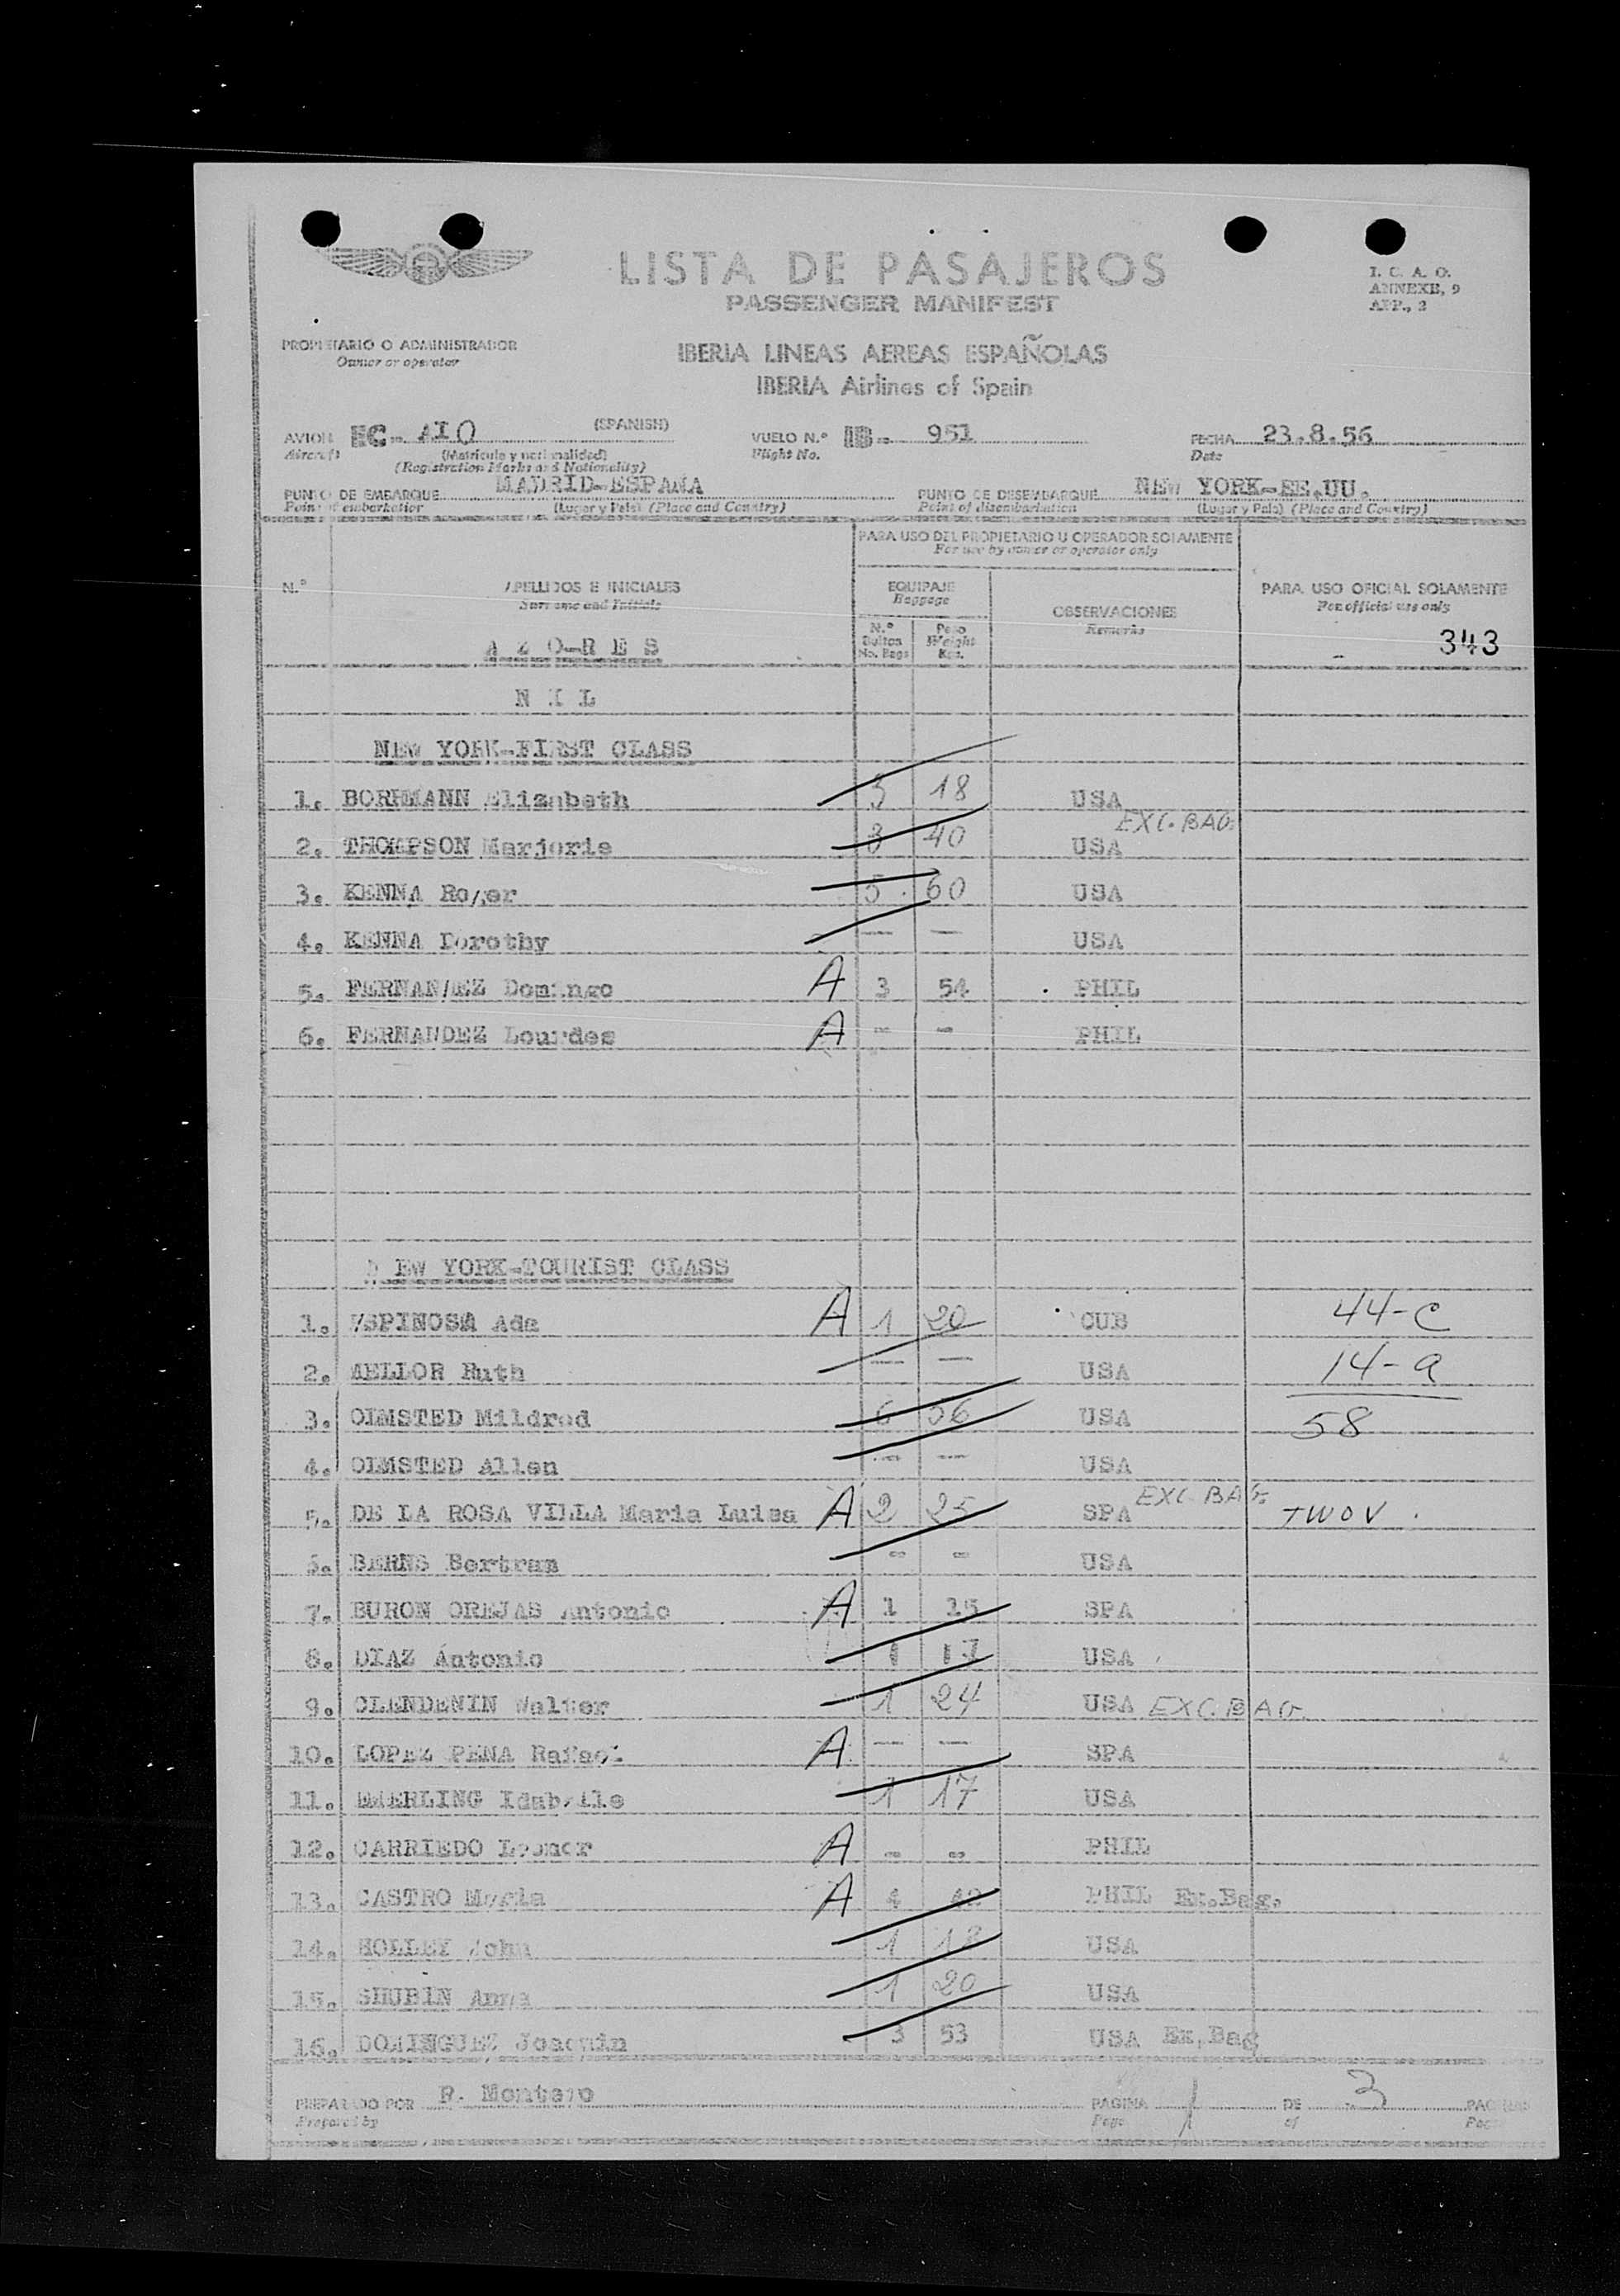 LISTA DE PASAJEROS
PASSENGER MANIFEST
I. C. A. O.
ANNEXE, 9
APP., 2
PROPIETARIO O ADMINISTRADOR
Owner or operator
IBERIA LINEAS AEREAS ESPAÑOLAS
IBERIA Airlines of Spain
AVION EC- AIO (SPANISH) VUELO N.º IB- 951 FECHA 23.8.56
Aircraft (Matricula y nacionalidad) Flight No. Date
(Registration Marks and Nationality)
PUNTO DE EMBARQUE MADRID-ESPAÑA PUNTO DE DESEMBARQUE NEW YORK-EE.UU.
Point of embarkation (Lugar y País) (Place and Country) Point of disembarkation (Lugar y País) (Place and Country)
PARA USO DEL PROPIETARIO U OPERADOR SOLAMENTE
For use by owner or operator only
N.º APELLIDOS E INICIALES EQUIPAJE OBSERVACIONES PARA USO OFICIAL SOLAMENTE
Surname and Initials Baggage Remarks For official use only
N.º Bultos No. Bags Peso Weight Kgs. 343
A Z O-R E S
N I L
NEW YORK-FIRST CLASS
1. BORHMANN Elizabeth 3 18 USA
EXC. BAG.
2. THOMPSON Marjorie 3 40 USA
3. KENNA Roger 5 60 USA
4. KENNA Dorothy — — USA
5. FERNANDEZ Domingo A 3 54 PHIL
6. FERNANDEZ Lourdes A - - PHIL
NEW YORK-TOURIST CLASS
1. ESPINOSA Ada A 1 20 CUB 44-C
2. MELLOR Ruth — — USA 14-a
3. OLMSTED Mildred 6 56 USA 58
4. OLMSTED Allen — — USA
EXC. BAG.
5. DE LA ROSA VILLA Maria Luisa A 2 25 SPA TWOV.
6. BERNS Bertram - - USA
7. BURON OREJAS Antonio A 1 15 SPA
8. DIAZ Ántonio 1 17 USA
9. CLENDENIN Walter 1 24 USA EXC. BAG.
10. LOPEZ PENA Rafael A — — SPA
11. Idabelle 1 17 USA
12. CARRIEDO Leonor A - - PHIL
13. CASTRO Maria A 4 42 PHIL Ex.Bag.
14. HOLLEY John 1 18 USA
15. SHUBIN Anna 1 20 USA
16. DOMINGUEZ Joaquin 3 53 USA Ex.Bag
PREPARADO POR R. Montero PAGINA 1 DE 3
Prepared by Page of